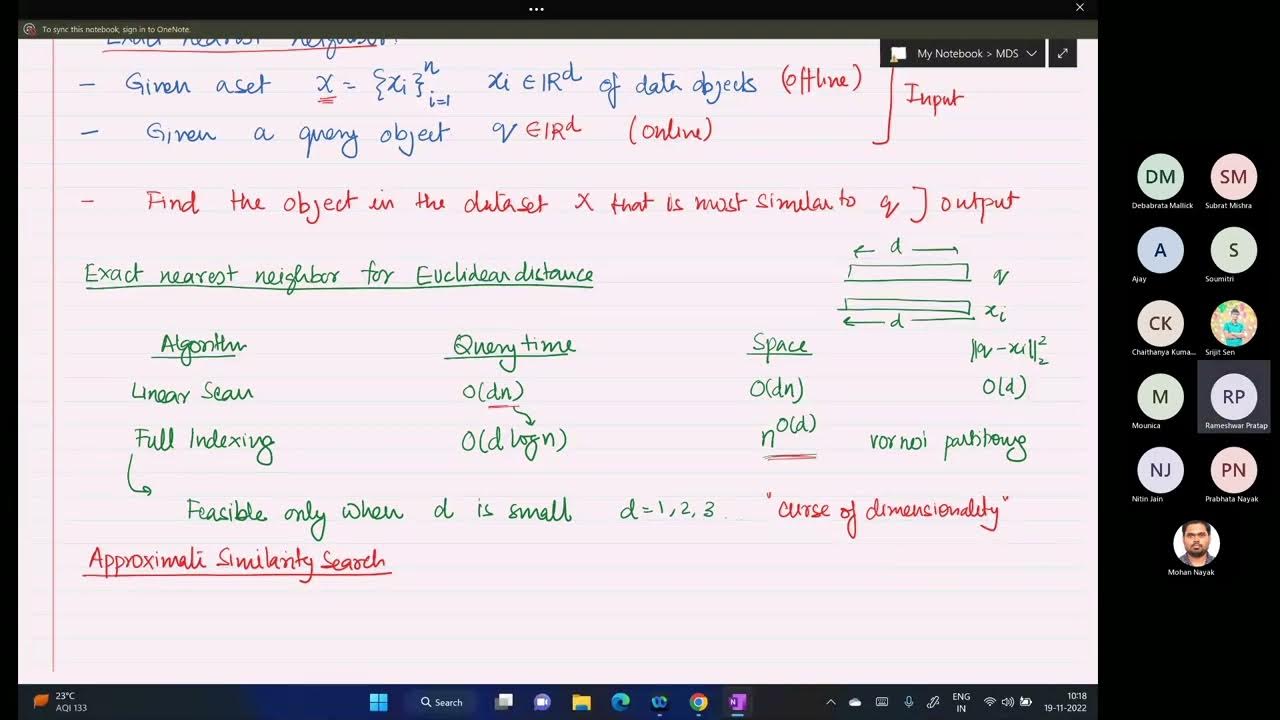 To sync this notebook, sign in to OneNote.
My Notebook > MDS
Exact nearest neighbor:
- Given a set X = {xi}ⁿi=1 xi ∈ IRᵈ of data objects (offline)
Input
- Given a query object q ∈ IRᵈ (online)
- Find the object in the dataset X that is most similar to q ] output
Exact nearest neighbor for Euclidean distance
← d →
q
xi
← d →
Algorithm Query time Space ||q-xi||²₂
Linear Scan O(dn) O(dn) O(d)
Full Indexing O(d log n) n^O(d) vornoi partitioning
Feasible only when d is small d=1,2,3... "curse of dimensionality"
Approximate Similarity Search
DM
Debabrata Mallick
SM
Subrat Mishra
A
Ajay
S
Soumitri
CK
Chaithanya Kuma...
Srijit Sen
M
Mounica
RP
Rameshwar Pratap
NJ
Nitin Jain
PN
Prabhata Nayak
Mohan Nayak
23°C
AQI 133
Search
ENG
IN
10:18
19-11-2022